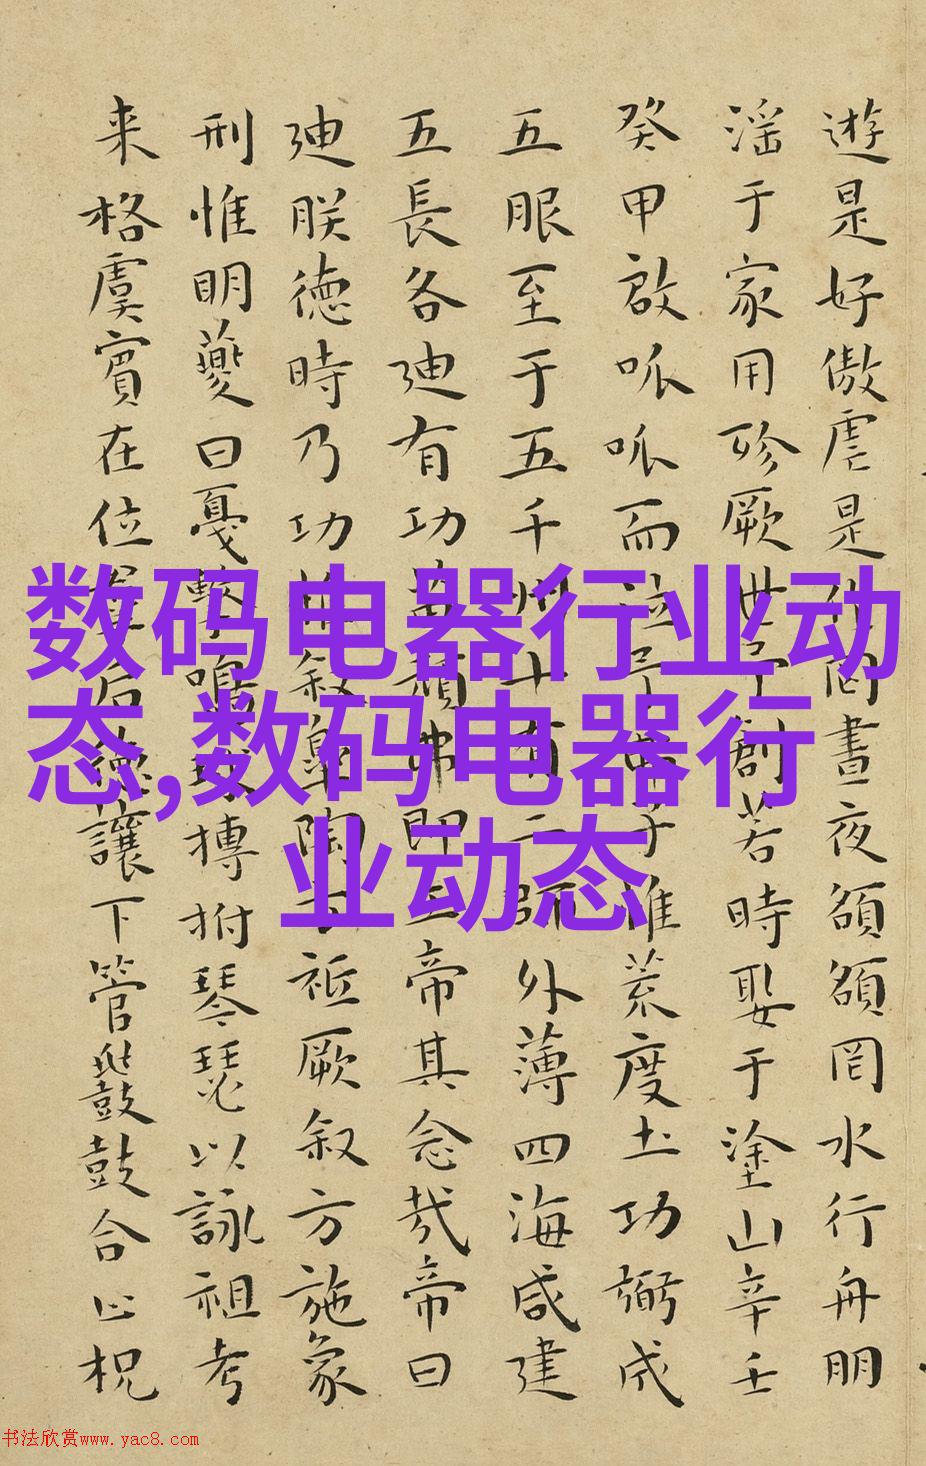 遊是好傲虐是作罔晝夜頟頟罔水行舟朋
滛于家用殄厥世予創若時娶于塗山辛壬
癸甲啟呱呱而泣予弗子惟荒度土功弼成
五服至于五千州十有二師外薄四海咸建
五長各迪有功苗頑弗即工帝其念哉帝曰
迪朕德時乃功惟叙皐陶方祗厥叙方施象
刑惟明夔曰戛擊鳴球搏拊琴瑟以詠祖考
来格虞賓在位羣后德讓下管鼗鼓合止柷
数码电器行业动
态,数码电器行
业动态
书法欣赏www.yac8.com